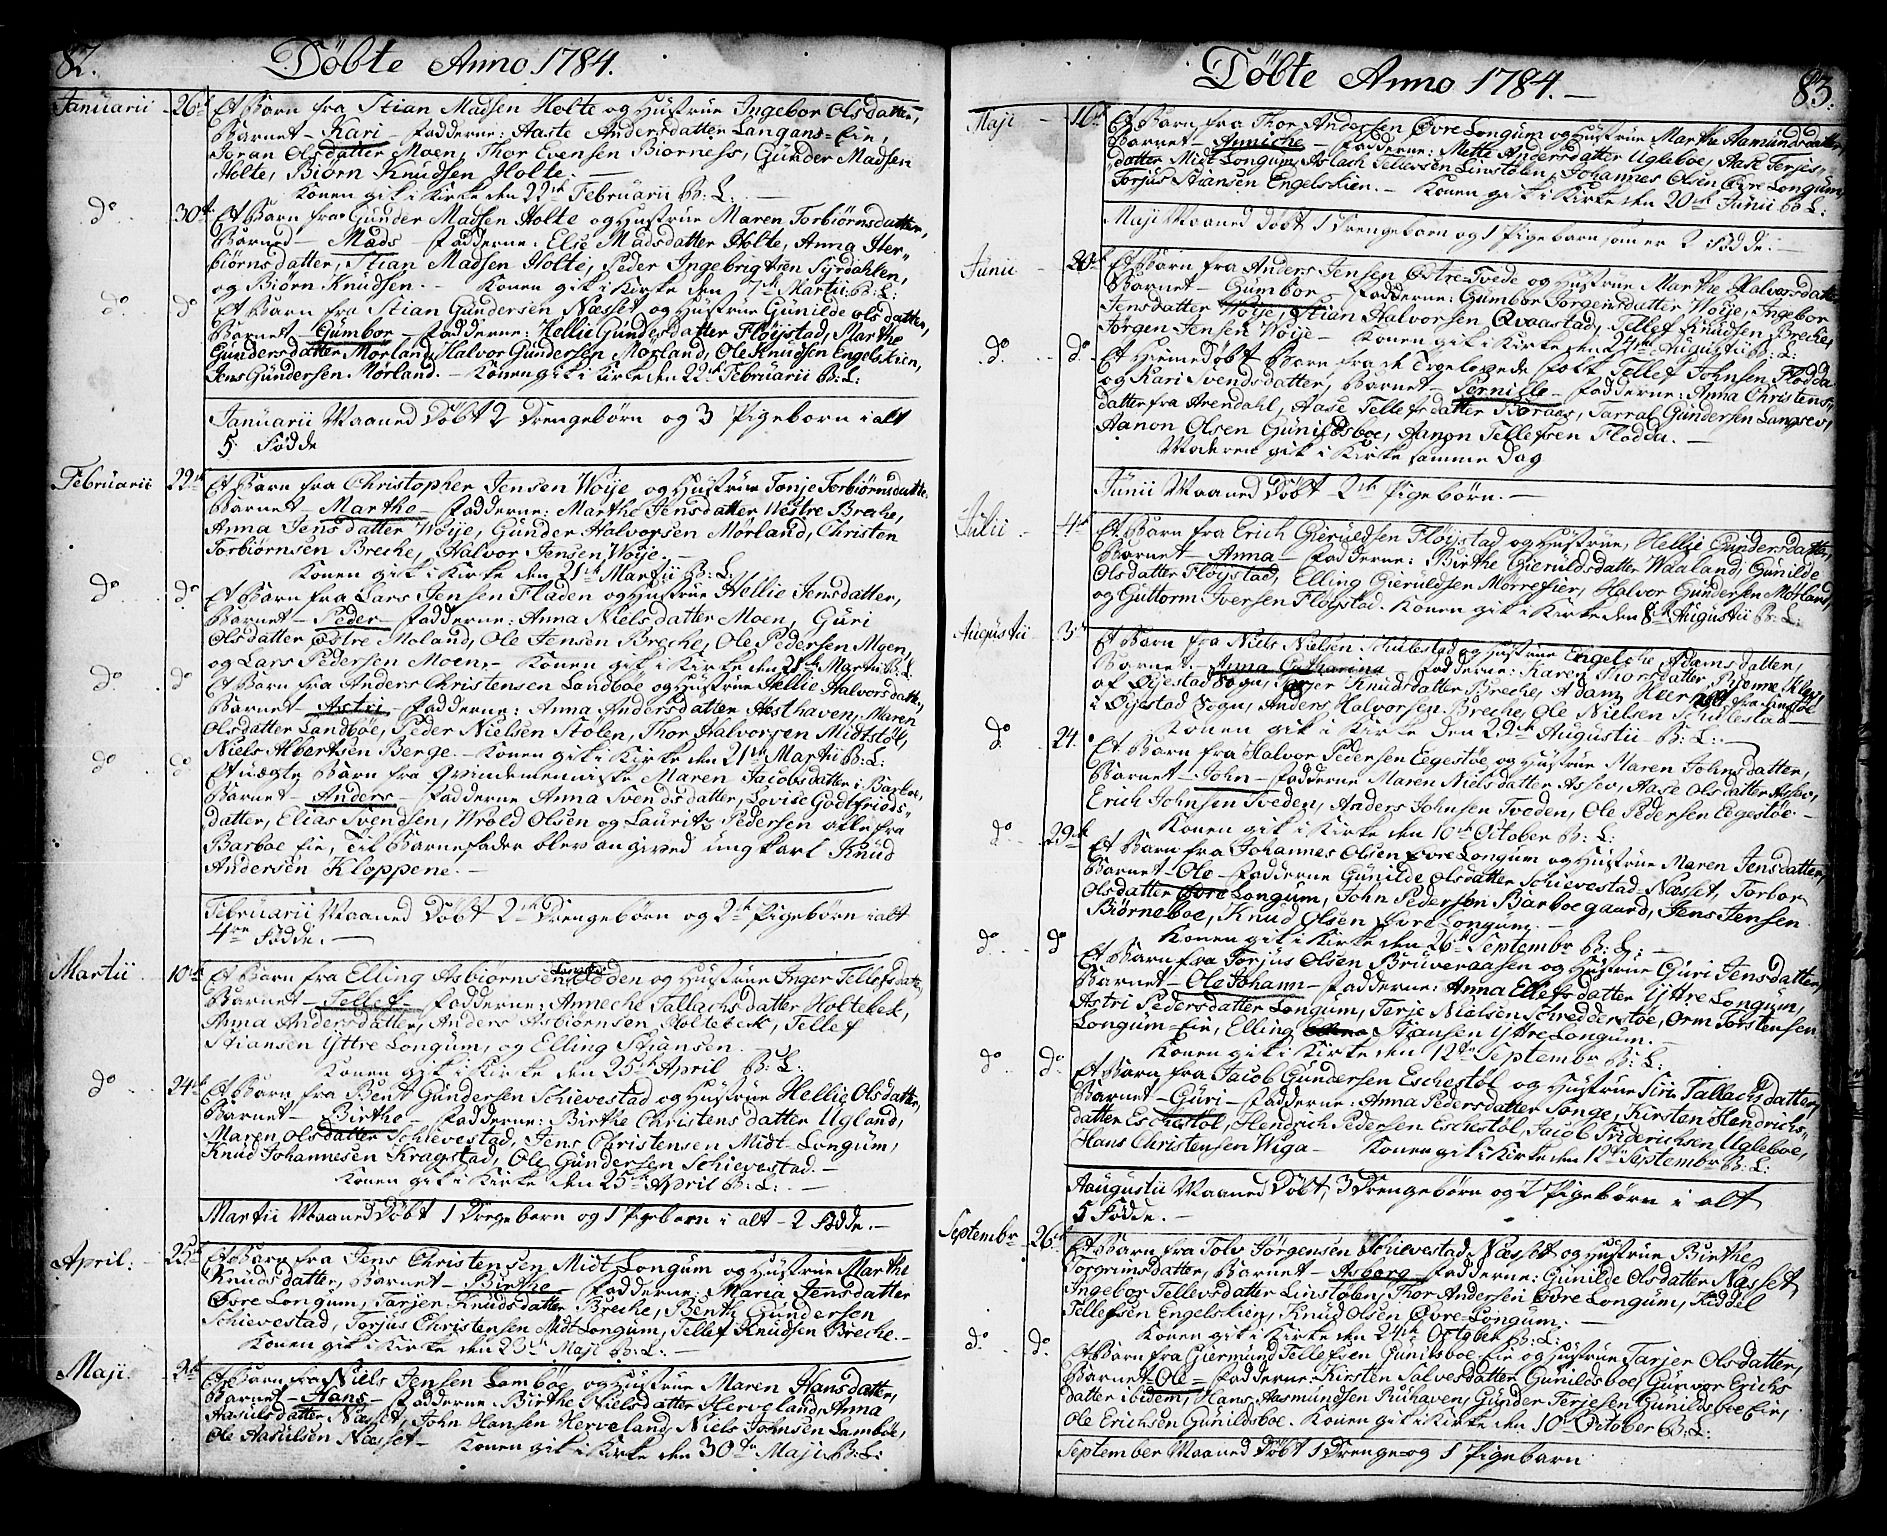 82.
Döbte Anno 1784.
Januarii 26de Et Barn fra Stian Madsen Holte og Hustrue Ingebor Olsdatter,
Barnet – Kari – Fadderne: Aaste Andersdatter Langans-Eie,
Joran Olsdatter Moen, Thor Evensen Biorness, Gunder Madsen
Holte, Biörn Knudsen Holte. –
Konen gik i Kirke den 22de Februarii B: L: –
do 30te Et Barn fra Gunder Madsen Holte og Hustrue Maren Torbiörnsdatter,
Barned – Mads – Fadderne: Else Madsdatter Holte, Anna
biörnsdatter, Stian Madsen Holte, Peder Ingebrigtsen Syrdahlen,
og Biörn Knudsen. – Konen gik i Kirke den 7de Martii B: L:
do do Et Barn fra Stian Gundersen Næsset og Hustrue Gunilde olsdatter,
Barnet – Gumbor – Fadderne: Hellie Gundersdatter Flöjstad, Marthe
Gundersdatter Mørland, Halvor Gundersen Mørland, Ole Knudsen Engelskien,
Jens Gundersen Mørland. – Konen gik i Kirke den 22de Februarii B: L:
Januarii Maaned Döbt 2 Drengebörn og 3 Pigeborn i alt
5 Födde
Februarii 22de Et Barn fra Christopher Jensen Woije og Hustrue Tonje Torbiörnsdatter
Barnet – Marthe – Fadderne: Marthe Jensdatter Westre Breche,
Anna Jensdatter Woije, Gunder Halvorsen Mørland, Christen
Torbiörnsen Breche, Halvor Jensen Woije. –
Konen gik i Kirke den 21de Martii B: L:
do do Et Barn fra Lars Jensen Fladen og Hustrue Hellie Jensdatter,
Barnet – Peder – Fadderne: Anna Nielsdatter Moen, Guri
Olsdatter Østre Moland, Ole Jensen Breche, Ole Pedersen Moen,
og Lars Pedersen Moen. – Konen gik i Kirke den 21de Martii B: L:
do do Et Barn fra Anders Christensen Landböe og Hustrue Hellie Halvorsdatter,
Barnet – Astri – Fadderne: Anna Andersdatter Aesthaven, Maren
Olsdatter Landböe, Peder Nielsen Stölen, Thor Halvorsen Midtstöl,
Niels Albertsen Berge. – Konen gik i Kirke den 21de Martii B: L:
do do Et uægte Barn fra Qvindemenniske Maren Jacobsdatter i Barboe,
Barnet – Anders – Fadderne Anna Svendsdatter, Lovise Godtfrids-
datter, Elias Svendsen, Wrold Olsen og Lauritz Pedersen alle fra
Barboe Eie, Til Barnefader blev angived ung karl Knud
Andersen Kloppene. –
Februarii Maaned Döbt 2de Drengebörn og 2de Pigebörn i alt
4re Födde. –
Martii 10de Et Barn fra Elling Asbiörnsen Odden og Hustrue Inger Tellefsdatter
Barnet – Tellef – Fadderne: Anneche Tallachsdatter Holtebek,
Anna Andersdatter, Anders Asbiörnsen Holtebek, Tellef
Stiansen Yttre Longum, og Elling Stiansen.
Konen gik i Kirke den 25de April B: L:
do 24de Et Barn fra Bent Gundersen Schievestad og Hustrue Hellie Olsdatter,
Barnet – Birthe – Fadderne: Birthe Christensdatter Ugland,
Maren Olsdatter Schievestad, Jens Christensen Midt-Longum,
Knud Johannesen Kragstad, Ole Gundersen Schievestad. –
Konen gik i Kirke den 25de April B: L: –
Martii Maaned Döbt 1 Dregebarn og 1 Pigebarn i alt – 2 Födde. –
April: 25de Et Barn fra Jens Christensen Midt Longum og Hustrue Marthe
Knudsdatter, Barnet – Birthe – Fadderne: Maria Jensdatter
Øvre Longum, Tarjer Knudsdatter Breche, Benth Gundersen
Schievestad, Torjus Christensen Midt Longum, Tellef Knudsen Breche. –
Konen gik i Kirke den 23de Maji B: L: –
Maji. 2de Et Barn fra Niels Jensen Lamböe og Hustrue Maren Hansdatter,
Barnet – Hans – Fadderne Birthe Nielsdatter Herveland, Anna
Aasulsdatter Næsset, John Hansen Herveland, Niels Johnsen Lamböe,
Ole Aasulsen Næsset – Konen gik i Kirke den 30te Maji B: L:
83.
Döbte Anno 1784. –
Maji – 16de Et Barn fra Thor Andersen Øvre Longum og Hustrue Marthe Aamundsdatter,
Barnet – Anniche – Fadderne: Mette Andersdatter Ugleböe, Aase Terjes-
datter Midt Longum, Aslach Tellefsen Linstölen, Johannes Olsen Øvre Longum,
Torjus Stiansen Engelskien. – Konen gik i Kirke den 20de Junii B: L:
Maji Maaned Döbt 1 Drengebarn og 1 Pigebarn som er 2 Födde.
Junii – 20de Et Barn fra Anders Jensen Østre-Tvede og Hustrue Marthe Halvorsdatter
Barnet – Gumbor – Fadderne: Gumbor Jorgensdatter Woije, Ingebor
Jensdatter Woije, Stian Halvorsen Qvaastad, Tellef Knudsen Breche,
Jørgen Jensen Woije – Konen gik i Kirke den 24de Augustii B: L:
do. do. Et Hiemedöbt Barn fra de Troelovede folk Tellef Johnsen Flodda
og Kari Svendsdatter, Barnet – Pernille – Fadderne: Anna Christens-
datter fra Arendahl, Aase Tellefsdatter Biøraas, Sarral Gundersen Langsev,
Aanon Olsen Gunildsboe, Aanon Tellefsen Flodda. –
Moderen gik i Kirke samme Dag
Junii Maaned Döbt 2de Pigebörn. –
Julii – 4de Et Barn fra Erich Gieruldsen Flöjstad og Hustrue, Hellie Gundersdatter,
Barnet – Anna – Fadderne: Birthe Gieruldsdatter Waaland, Gunilde
Olsdatter Flöjstad, Elling Gieruldsen Mørrefier, Halvor Gundersen Mørland,
og Guttorm Iversen Flöjstad. Konen gik i Kirke den 8de Augustii B: L:
Augustii 3de Et Barn fra Niels Nielsen Schulestad og Hustrue Engelche Adamsdatter,
Barnet – Anna Catharina – Fadderne: Karen Thorsdatter
af Øyestad Sogn, Tarjer Knudsdatter Breche, Adam
i Øyestad Sogn, Anders Halvorsen Breche, Ole Nielsen Schulestad –
Konen gik i Kirke den 29de Augustii B: L: –
do 24. Et Barn fra Halvor Pedersen Eegestöe og Hustrue Maren Johnsdatter,
Barnet – John – Fadderne Maren Nielsdatter Assev, Aase Olsdatter Assev,
Erich Johnsen Tveden, Anders Johnsen Tveden, Ole Pedersen Eegestöe. –
Konen gik i Kirke den 10de October B: L:
do 29de Et Barn fra Johannes Olsen Øvre Longum og Hustrue Maren Jensdatter,
Barnet – Ole – Fadderne Gunilde Olsdatter Schievestad-Næsset, Torbor
Olsdatter Øvre Longum, John Pedersen Barboegaard, Jens Jensen
Biörneboe, Knud Olsen Øvre Longum. –
Konen gik i Kirke den 26de Septembr B: L: –
do do Et Barn fra Torjus Olsen Bruveraasen og Hustrue Guri Jensdatter,
Barnet – Ole Johann – Fadderne: Anna Ellefsdatter Yttre Longum,
Astri Pedersdatter Longum, Terje Nielsen Schredderstöe, Orm Torstensen
Longum-Eie, Elling Stiansen Yttre Longum. –
Konen gik i Kirke den 12de Septembr B: L:
do do. Et Barn fra Jacob Gundersen Eschestöl og Hustrue Siri Tallachsdatter,
Barnet – Guri – Fadderne: Anna Pedersdatter Songe, Kirsten Hendrichs-
datter Eschestöl, Hendrich Pedersen Eschestöl, Jacob Friderichsen Ugleboe,
Hans Christensen Wiga – Konen gik i Kirke den 12de Septembr B: L:
Aaugustii Maaned Döbt, 3 Drengebörn og 2 Pigebörn i alt
5 Födde. –
Septembr 26de Et Barn fra Tolv Jørgensen Schievestad Næsset og Hustrue Birthe
Torgrimsdatter, Barnet – Asberg – Fadderne: Gunilde Olsdatter Næsset,
Ingebor Tellevsdatter Linstölen, Thor Andersen Øvre Longum, Kiddel
Tellefsen Engelskien, Knud Olsen Øvre-Longum. –
Konen gik i Kirke den 24de October B: L:
do. do. Et Barn fra Giermund Tellefsen Gunilsboe-Eie og Hustrue Tarjer Olsdatter,
Barnet – Ole – Fadderne: Kirsten Salvesdatter Gunildsboe, Gunvor Erichs
datter ibidem, Hans Aasmundsen Riishaven, Gunder Terjesen Gunildsboe Eie,
Ole Erichsen Gunildsboe. Konen gik i Kirke den 10de October B: L:
September Maaned Döbt 1 Drenge- og 1 Pigebarn